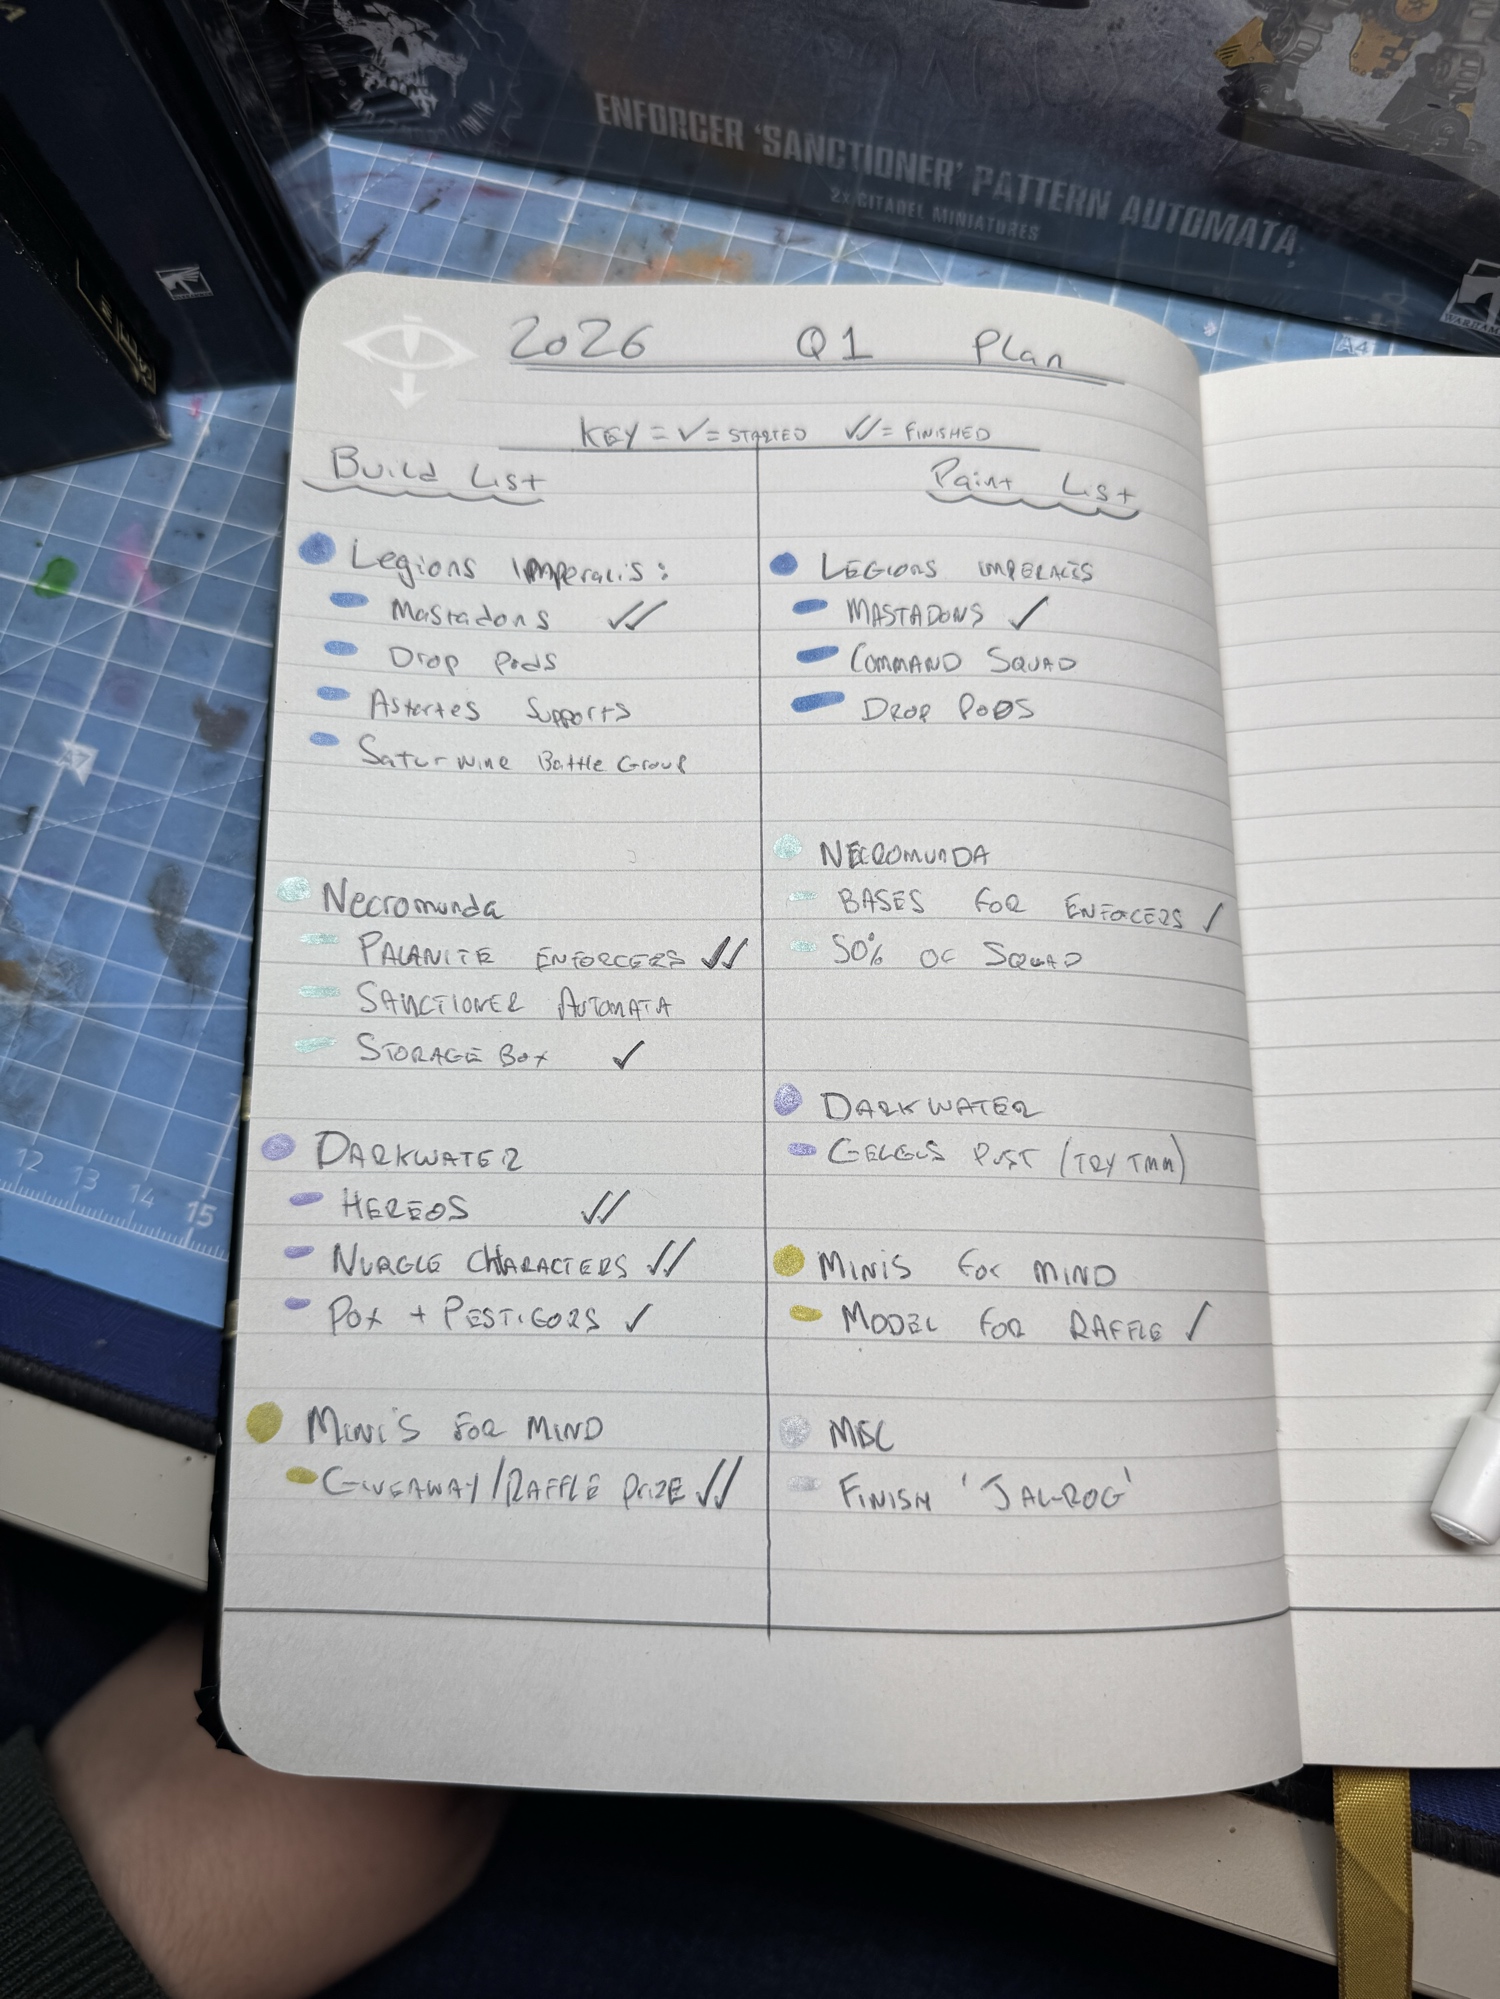 ENFORCER 'SANCTIONER' PATTERN AUTOMATA
2x CITADEL MINIATURES
A4
A7
12 13 14 15
2026 Q1 Plan
KEY = ✓ = STARTED ✓✓ = FINISHED
Build List
Legions Imperalis:
Mastadons ✓✓
Drop Pods
Astartes Supports
Saturnine Battle Group
Necromunda
PALANITE ENFORCERS ✓✓
SANCTIONER AUTOMATA
STORAGE BOX ✓
DARKWATER
HEREOS ✓✓
NURGLE CHARACTERS ✓✓
POX + PESTIGORS ✓
MINI'S FOR MIND
GIVEAWAY/RAFFLE PRIZE ✓✓
Paint List
LEGIONS IMPERALIS
MASTADONS ✓
COMMAND SQUAD
DROP PODS
NECROMUNDA
BASES FOR ENFORCERS ✓
50% OF SQUAD
DARKWATER
GELGUS PUST (TRY TMM)
MINIS FOR MIND
MODEL FOR RAFFLE ✓
MISC
FINISH 'JAL-ROG'